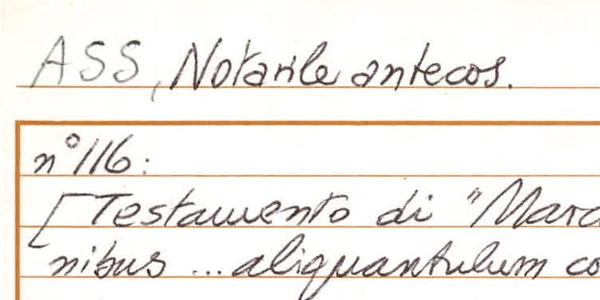 ASS, Notarile antecos.
n° 116:
[Testamento di "Marc
nibus ... aliquantulum co